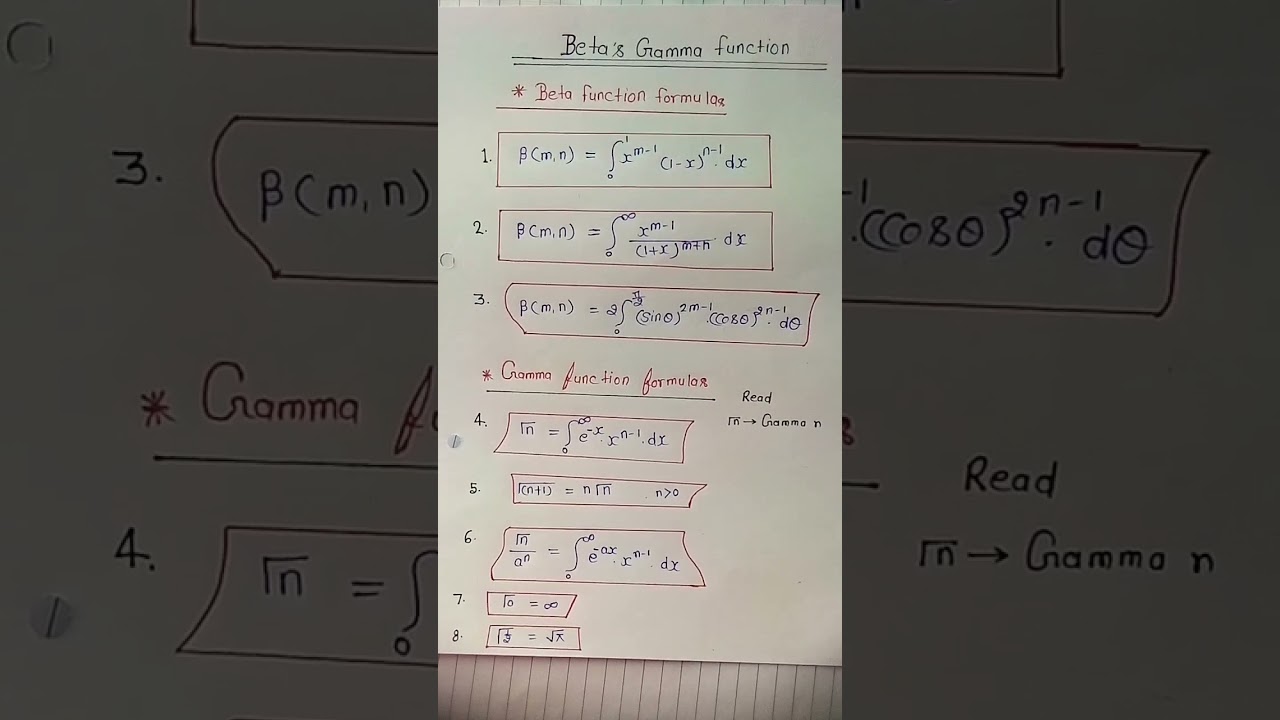 Beta's Gamma function
* Beta function formulas
1. β(m,n) = ∫₀¹ x^{m-1} (1-x)^{n-1}. dx
2. β(m,n) = ∫₀^∞ x^{m-1}/(1+x)^{m+n} dx
3. β(m,n) = 2∫₀^{π/2} (sinθ)^{2m-1}.(cosθ)^{2n-1}. dθ
* Gamma function formulas
Read
Γn → Gamma n
4. Γn = ∫₀^∞ e^{-x}. x^{n-1}. dx
5. Γ(n+1) = n Γn . n>0
6. Γn/aⁿ = ∫₀^∞ e^{-ax}. x^{n-1}. dx
7. Γ0 = ∞
8. Γ½ = √π
3. β(m,n)
-1 .(cosθ)^{2n-1}. dθ
* Gamma
Read
4. Γn = ∫₀
Γn → Gamma n